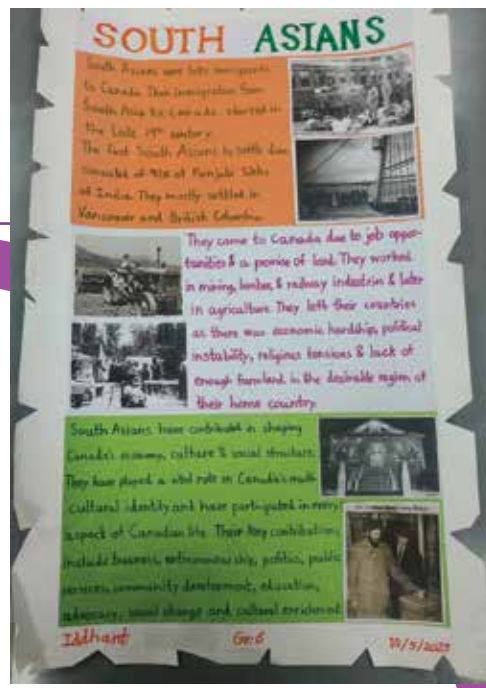 SOUTH ASIANS
South Asians were Sikh immigrants
to Canada. Their immigration from
South Asia to Canada started in
the late 19th century.
The first South Asians to settle
consisted of of Punjabi Sikhs
of India. They mostly settled in
Vancouver and British Columbia.
They came to Canada due to job oppor-
tunities & a promise of land. They worked
in mining, lumber, & railway industries & later
in agriculture. They left their countries
as there was economic hardship, political
instability, religious tensions & lack of
enough farmland in the desirable region of
their home country.
South Asians have contributed in shaping
Canada's economy, culture & social structure.
They have played a vital role in Canada's multi
cultural identity and have participated in every
aspect of Canadian life. Their key contributions
include business, entrepreneurship, politics, public
services, community development, education,
advocacy, social change and cultural enrichment
Iddhant Gr:6 /5/2025